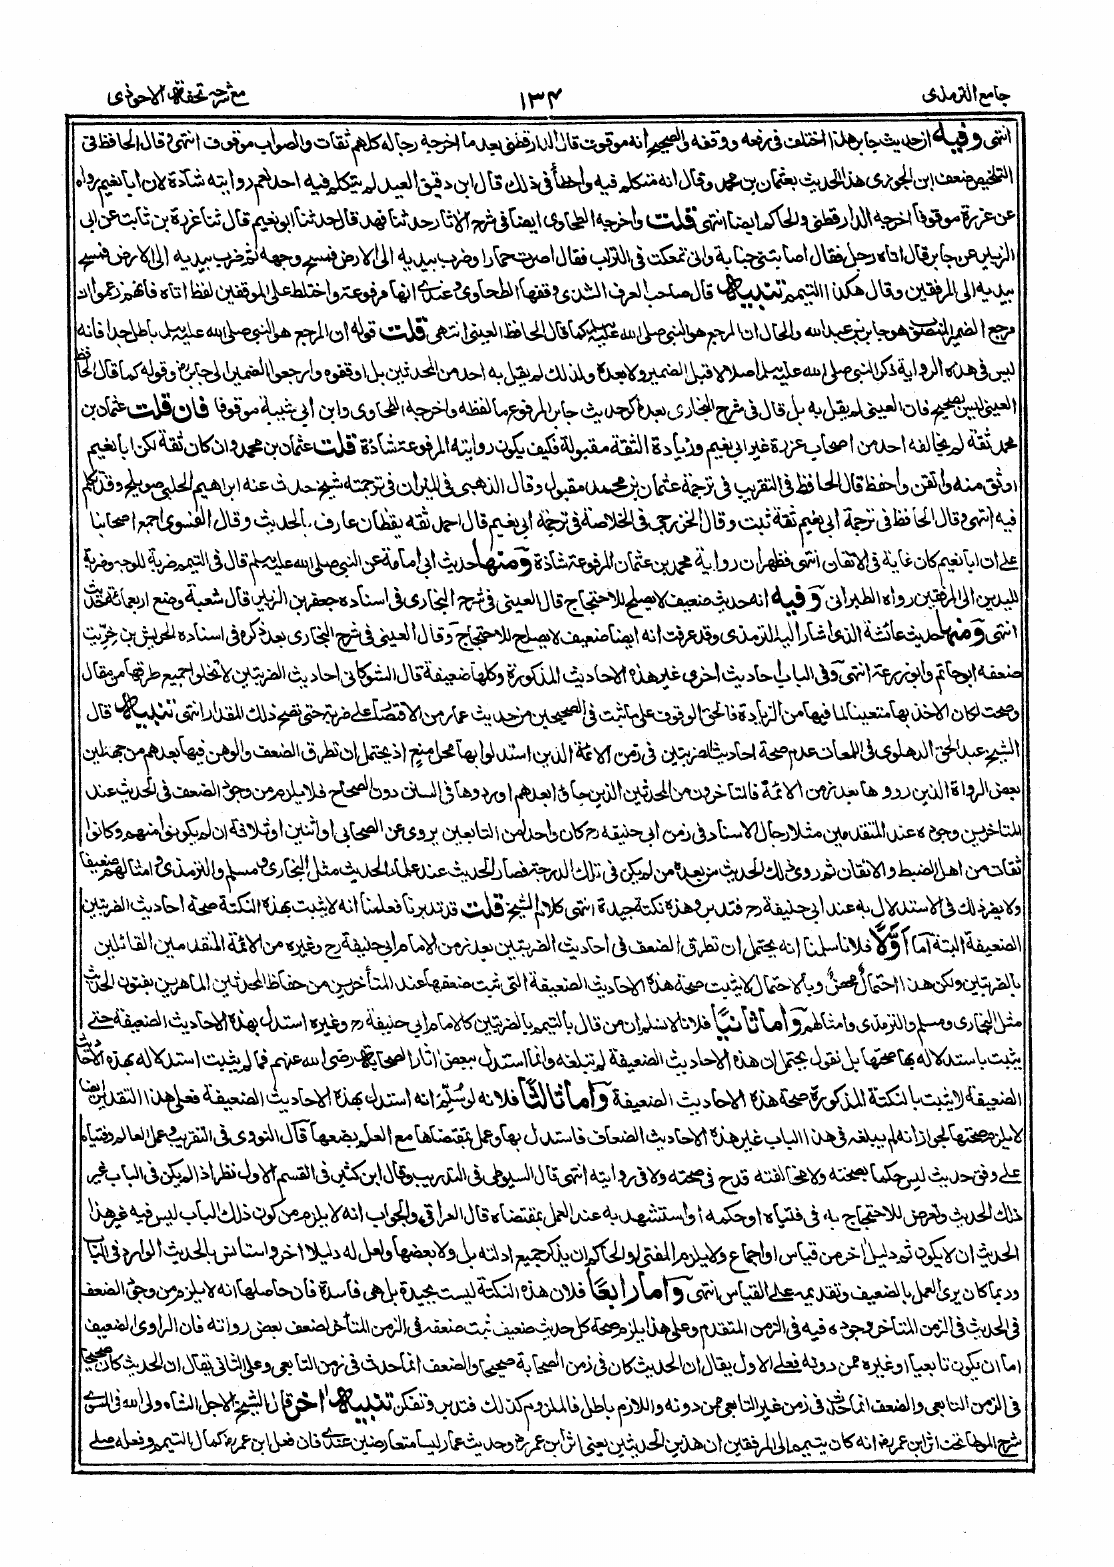 جامع الترمذی ۱۳۴ مع شرحہ تحفۃ الاحوذی
انتهى وفيه ان حديث جابر هذا اختلف في رفعه ووقفه والصحيح انه موقوف قال الدارقطني بعد ما اخرجه رجاله كلهم ثقات والصواب موقوف انتهى وقال الحافظ في
التلخيص ضعف ابن الجوزى هذا الحديث بعثمان بن محمد وقال انه متكلم فيه واخطأ في ذلك قال ابن دقيق العيد لم يتكلم فيه احد نعم روايته شاذة لان ابا نعيم رواه
عن عزرة موقوفا اخرجه الدارقطني والحاكم ايضا انتهى قلت واخرجه الطحاوى ايضا في شرح الاثار حدثنا فهد قال حدثنا ابو نعيم قال ثنا عزرة بن ثابت عن ابى
الزبير عن جابر قال اتاه رجل فقال اصابتنى جنابة وانى تمعكت في التراب فقال اصرت حمارا وضرب بيديه الى الارض فمسح وجهه ثم ضرب بيديه الى الارض فمسح
بيديه الى المرفقين وقال هكذا التيمم تنبيه قال صاحب العرف الشذى وقفها الطحاوى وعندى انها مرفوعة واختلط على الموقفين لفظ اتاه فانهم زعموا ان
مرجع الضمير المنصوب هو جابر بن عبد الله والحال ان المرجع هو النبى صلى الله عليه وسلم كما قال الحافظ العينى انتهى قلت قوله ان المرجع هو النبى صلى الله عليه وسلم باطل جدا فانه
ليس في هذه الرواية ذكر النبى صلى الله عليه وسلم اصلا لا قبل الضمير ولا بعده ولذلك لم يقل به احد من المحدثين بل اوقفوه وارجعوا الضمير الى جابر وقوله كما قال الحافظ
العينى ليس بصحيح فان العينى لم يقل به بل قال في شرح البخارى بعد ذكر حديث جابر المرفوع ما لفظه واخرجه الطحاوى وابن ابى شيبة موقوفا فان قلت عثمان بن
محمد ثقة لم يخالفه احد من اصحاب عزرة غير ابى نعيم وزيادة الثقة مقبولة فكيف يكون روايته المرفوعة شاذة قلت عثمان بن محمد وان كان ثقة لكن ابا نعيم
اوثق منه واتقن واحفظ قال الحافظ في التقريب في ترجمة عثمان بن محمد مقبول وقال الذهبى في الميزان في ترجمته شيخ حدث عنه ابراهيم الحلبى صويلح وقد تكلم
فيه انتهى وقال الحافظ في ترجمة ابى نعيم ثقة ثبت وقال الخزرجى في الخلاصة في ترجمة ابى نعيم قال احمد ثقة يقظان عارف بالحديث وقال الفسوى اجمع اصحابنا
على ان ابا نعيم كان غاية في الاتقان انتهى فظهر ان رواية محمد بن عثمان المرفوعة شاذة ومنها حديث ابى امامة عن النبى صلى الله عليه وسلم قال في التيمم ضربة للوجه وضربة
لليدين الى المرفقين رواه الطبرانى وفيه انه حديث ضعيف لا يصلح للاحتجاج قال العينى في شرح البخارى في اسناده جعفر بن الزبير قال شعبة وضع اربعمائة حديث
انتهى ومنها حديث عائشة الذى اشار اليه الترمذى وقد عرفت انه ايضا ضعيف لا يصلح للاحتجاج وقال العينى في شرح البخارى بعد ذكره في اسناده الحريش بن خريت
ضعفه ابو حاتم وابو زرعة انتهى وفى الباب احاديث اخرى غير هذه الاحاديث المذكورة وكلها ضعيفة قال الشوكانى احاديث الضربتين لا تخلوا جميع طرقها من مقال
وصحت لكان الاخذ بها متعينا لما فيها من الزيادة فالحق الوقوف على ما ثبت في الصحيحين من حديث عمار من الاقتصار على ضربة حتى تصح ذلك المقدار انتهى تنبيه قال
الشيخ عبد الحق الدهلوى في اللمعات عدم صحة احاديث الضربتين في زمن الائمة الذين استدلوا بها محل منع اذ يحتمل ان تطرق الضعف والوهن فيها بعدهم من جهة لين
بعض الرواة الذين رووها بعد زمن الائمة فالمتاخرون من المحدثين الذين جاؤا بعدهم اوردوها في السنن دون الصحاح فلا يلزم من وجود الضعف في الحديث عند
المتاخرين وجوده عند المتقدمين مثلا رجال الاسناد في زمن ابى حنيفة رح كان واحدا من التابعين يروى عن الصحابى او اثنين او ثلاثة ان لم يكونوا منهم وكانوا
ثقات من اهل الضبط والاتقان ثم روى ذلك الحديث من بعده من لم يكن في تلك الدرجة فصار الحديث عند علماء الحديث مثل البخارى ومسلم والترمذى وامثالهم ضعيفا
ولا يضر ذلك في الاستدلال به عند ابى حنيفة رح فتدبر وهذه نكتة جيدة انتهى كلام الشيخ قلت قد تدبرنا فعلمنا انه لا يثبت بهذه النكتة صحة احاديث الضربتين
الضعيفة البتة اما اولا فلانا سلمنا انه يحتمل ان تطرق الضعف في احاديث الضربتين بعد زمن الامام ابى حنيفة رح وغيره من الائمة المتقدمين القائلين
بالضربتين ولكن هذا احتمال محض وبالاحتمال لا يثبت صحة هذه الاحاديث الضعيفة التى ثبت ضعفها عند المتأخرين من حفاظ المحدثين الماهرين بفنون الحديث
مثل البخارى ومسلم والترمذى وامثالهم واما ثانيا فلانا لا نسلم ان من قال بالتيمم بالضربتين كالامام ابى حنيفة رح وغيره استدل بهذه الاحاديث الضعيفة حتى
يثبت باستدلاله بها صحتها بل نقول يحتمل ان هذه الاحاديث الضعيفة لم تبلغه وانما استدل ببعض اثار الصحابة رضى الله عنهم فما لم يثبت استدلاله بهذه الاحاديث
الضعيفة لا يثبت بالنكتة المذكورة صحة هذه الاحاديث الضعيفة واما ثالثا فلانه لو سلم انه استدل بهذه الاحاديث الضعيفة فعلى هذا التقدير ايضا
لا يلزم صحتها لجواز انه لم يبلغه في هذا الباب غير هذه الاحاديث الضعاف فاستدل بها وعمل بمقتضاها مع العلم بضعفها قال النووى في التقريب وعمل العالم وفتياه
على وفق حديث ليس حكما بصحته ولا مخالفته قدح في صحته ولا في روايته انتهى قال السيوطى في التدريب وقال ابن كثير في القسم الاول نظر اذ لم يكن في الباب غير
ذلك الحديث وتعرض للاحتجاج به في فتياه او حكمه او استشهد به عند العمل بمقتضاه قال العراقى والجواب انه لا يلزم من كون ذلك الباب ليس فيه غير هذا
الحديث ان لا يكون ثم دليل اخر من قياس او اجماع ولا يلزم المفتى او الحاكم ان يذكر جميع ادلته بل ولا بعضها ولعل له دليلا اخر واستانس بالحديث الوارد في الباب
وربما كان يرى العمل بالضعيف وتقديمه على القياس انتهى واما رابعا فلان هذه النكتة ليست بجيدة بل هى فاسدة فان حاصلها انه لا يلزم من وجود الضعف
في الحديث في الزمن المتاخر وجوده فيه في الزمن المتقدم وعلى هذا يلزم صحة كل حديث ضعيف ثبت ضعفه في الزمن المتأخر لضعف بعض رواته فان الراوى الضعيف
اما ان يكون تابعيا او غيره ممن دونه فعلى الاول يقال ان الحديث كان في زمن الصحابة صحيحا والضعف انما حدث في زمن التابعى وعلى الثانى يقال ان الحديث كان صحيحا
في الزمن التابعى والضعف انما حدث في زمن غير التابعى ممن دونه واللازم باطل فالملزوم كذلك فتدبر وتفكر تنبيه اخر قال الشيخ الاجل الشاه ولى الله في المسوى
شرح الموطا تحت اثر ابن عمر رض انه كان يتيمم الى المرفقين ان هذين الحديثين يعنى اثر ابن عمر رض وحديث عمار ليسا متعارضين عندى فان فعل ابن عمر رض كمال التيمم وفعله صلى